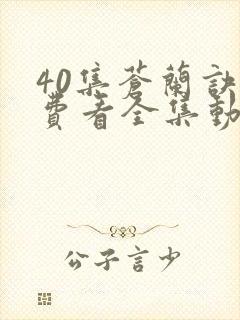 40集蒼蘭訣
費看全集動
公子言少